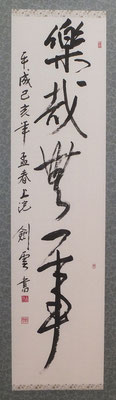 樂哉無一事
平成己亥年 孟春上浣 劍雲書